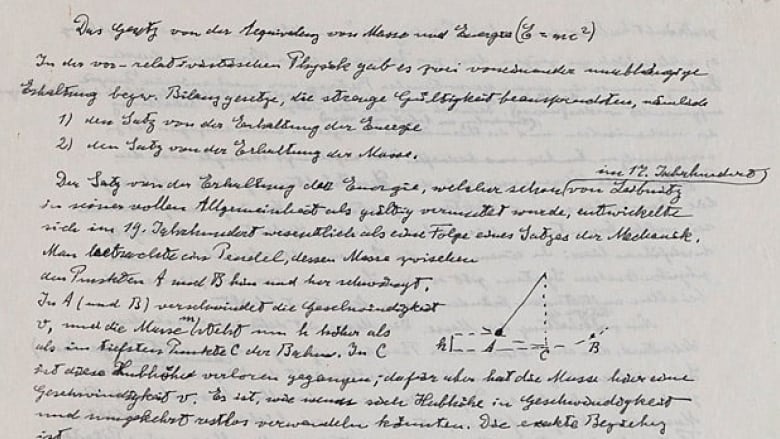 Das Gesetz von der Aequivalenz von Masse und Energie (E = mc²)
In der vor-relativistischen Physik gab es zwei voneinander unabhängige
Erhaltung bezw. Bilanzgesetze, die strenge Gültigkeit beanspruchten, nämlich
1) den Satz von der Erhaltung der Energie
2) den Satz von der Erhaltung der Masse.
im 17. Jahrhundert
Der Satz von der Erhaltung der Energie, welcher schon von Leibnitz
in seiner vollen Allgemeinheit als gültig vermutet wurde, entwickelte
sich im 19. Jahrhundert wesentlich als eine Folge eines Satzes der Mechanik.
Man betrachte ein Pendel, dessen Masse zwischen
den Punkten A und B hin und her schwingt.
In A (und B) verschwindet die Geschwindigkeit
v, und die Masse m steht um h höher als
als im tiefsten Punkte C der Bahn. In C
h A C B
ist diese Hubhöhe verloren gegangen; dafür aber hat die Masse hier eine
Geschwindigkeit v. Es ist, wie wenn sich Hubhöhe in Geschwindigkeit
und umgekehrt restlos verwandeln könnten. Die exakte Beziehung
ist